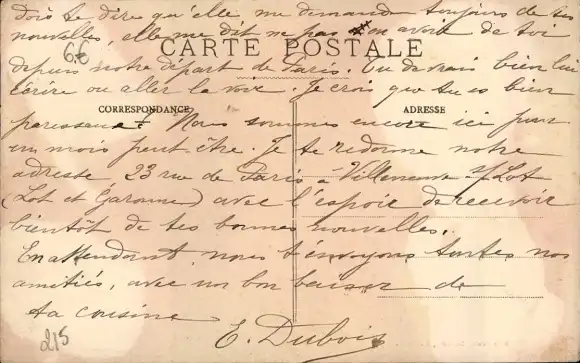 dois te dire qu'elle me demande toujours de tes
nouvelles, elle me dit ne pas en avoir de toi
66
CARTE POSTALE
depuis notre départ de Paris. Tu devrais bien lui
écrire ou aller la voir. Je crois que tu es bien
CORRESPONDANCE
ADRESSE
paresseuse! Nous sommes encore ici pour
un mois peut être. Je te redonne notre
adresse 23 rue de Paris à Villeneuve s/Lot
(Lot et Garonne) avec l'espoir de recevoir
bientôt de tes bonnes nouvelles.
En attendant nous t'envoyons toutes nos
amitiés, avec un bon baiser de
ta cousine
E. Dubois
215